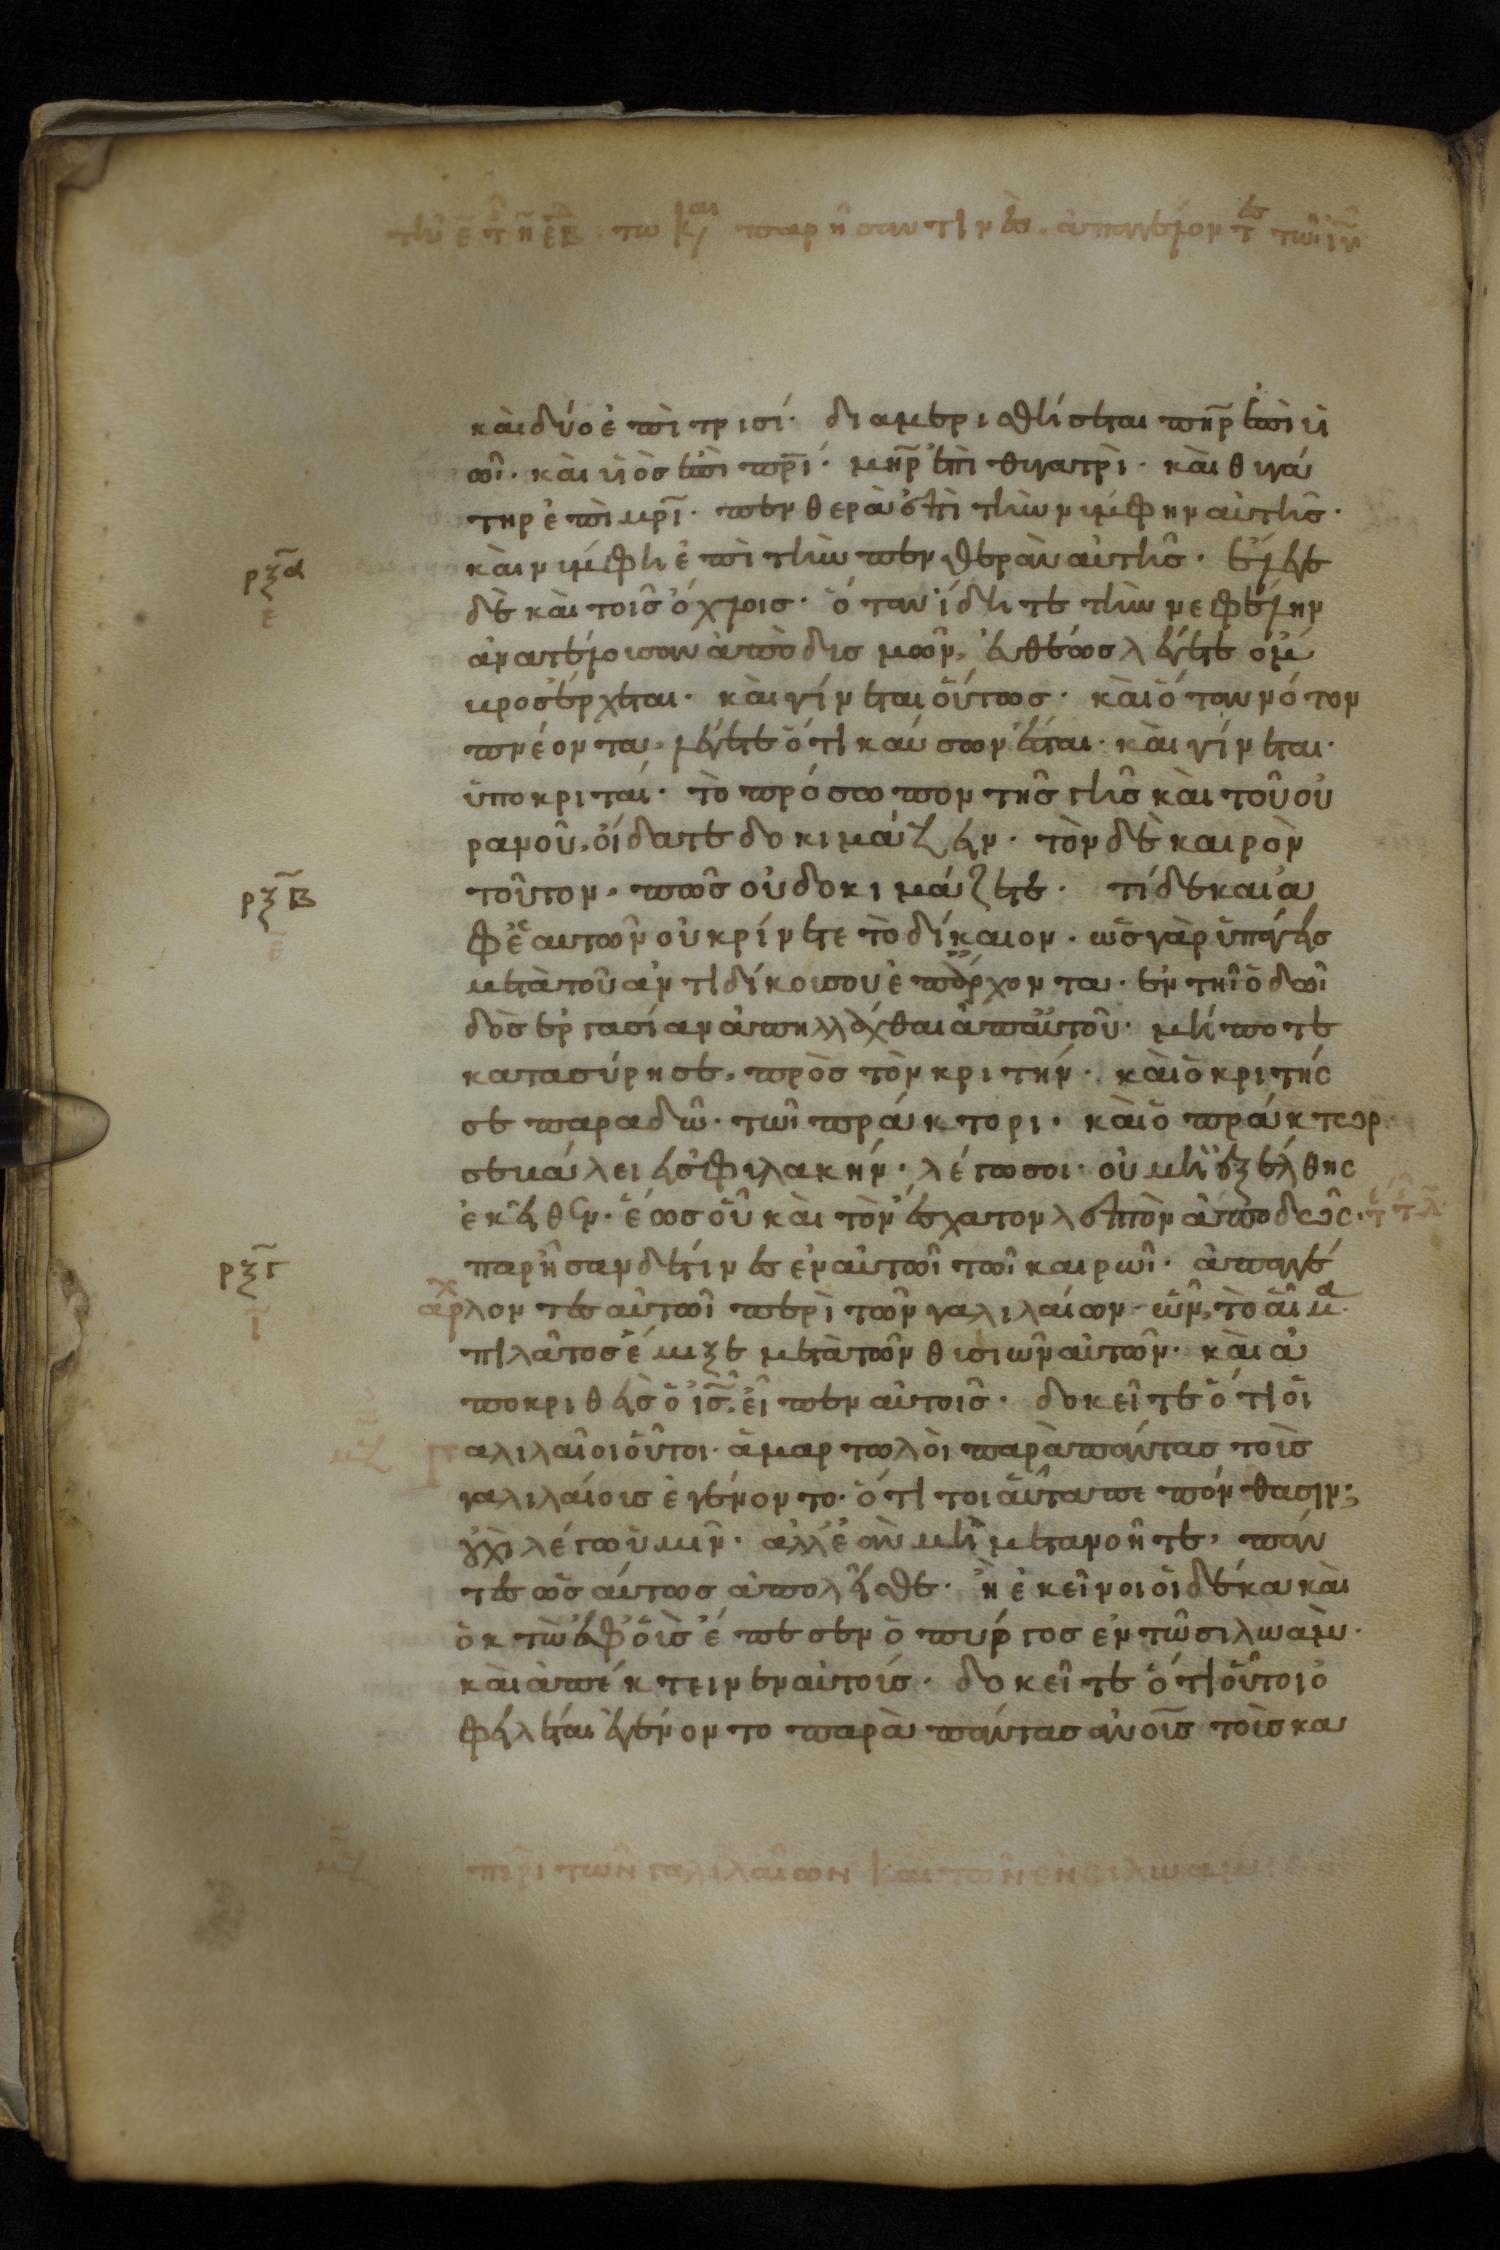 τῆ ε τ η ε β τω κ και παρησαν τινες απαγγελοντες τωι ιυ
και δύο ἐπὶ τρισί· διαμερισθήσεται πηρ ἐπὶ ὑι
ωῖ· καὶ ὑιὸς ἐπὶ πρι· μηρ ἐπὶ θυγατρὶ· καὶ θυγά
τηρ ἐπὶ μρι· πενθερὰ ἐπὶ τὴν νύμφην αὐτῆς·
καὶ νύμφη ἐπὶ τὴν πενθερὰν αὐτῆς· ἔλεγε
ρξα
ε
δὲ καὶ τοῖς ὄχλοις· ὅταν ἴδητε τὴν νεφέλην
ἀνατέλουσαν ἀπὸ δυσμῶν, ἐυθέως λέγετε ὄμ
βρος ἔρχεται· καὶ γίνεται οὕτως· καὶ ὅταν νότον
πνέοντα, λέγετε ὅτι καύσων ἔσται· καὶ γίνεται·
ὑποκριταί· τὸ πρόσωπον τῆς γῆς καὶ τοῦ οὐ
ρανοῦ, οἴδατε δοκιμάζειν· τὸν δὲ καιρὸν
τοῦτον, πῶς οὐ δοκιμάζετε· τί δὲ και ἀ
ρξβ
ε
φ ἑαυτῶν οὐ κρίνετε τὸ δίκαιον· ὡς γὰρ ὑπάγεις
μετὰ τοῦ ἀντιδίκου σου ἐπ ἄρχοντα· ἐν τῆι ὁδῶι
δὸς ἐργασίαν ἀπηλλάχθαι ἀπ αὐτοῦ· μήποτε
κατασύρη σε, πρὸς τὸν κριτήν· καὶ ὁ κριτής
σε παραδῶ· τῶι πράκτορι· καὶ ὁ πράκτωρ
σε βάλει εἰς φυλακήν· λέγω σοι· οὐ μὴ ἐξέλθης
ἐκεῖθεν· ἕως οὗ καὶ τὸν ἔσχατον λεπτὸν ἀποδῶς·
παρῆσαν δέ τινες ἐν αὐτῶι τῶι καιρῶι· ἀπαγγέ
ρξγ
ι
αρχ
λοντες αὐτῶι περὶ τῶν γαλιλαίων· ὧν, τὸ αἷμα
πιλᾶτος ἔμιξε μετὰ τῶν θυσιῶν αὐτῶν· καὶ ἀ
ποκριθεὶς ὁ ις, εἶπεν αὐτοῖς· δοκεῖτε ὅτι οἱ
μζ
Γαλιλαῖοι οὗτοι· ἁμαρτωλοὶ παρὰ πάντας τοὺς
γαλιλαίους ἐγένοντο· ὅτι τοιαῦτα πεπόνθασιν;
οὐχὶ λέγω ὑμῖν· ἀλλ ἐὰν μὴ μετανοῆτε, πάν
τες ὡσάυτως ἀπολεῖσθε· ἢ ἐκεῖνοι οἱ δέκα καὶ
ὀκτὼ ἐφ οὓς ἔπεσεν ὁ πύργος ἐν τῶ σιλωὰμ·
καὶ ἀπέκτεινεν αὐτούς· δοκεῖτε ὅτι οὗτοι ὀ
φειλέται ἐγένοντο παρὰ πάντας ανους τοὺς κα
μζ
περι τῶν γαλιλαίων και των εν σιλωαμ